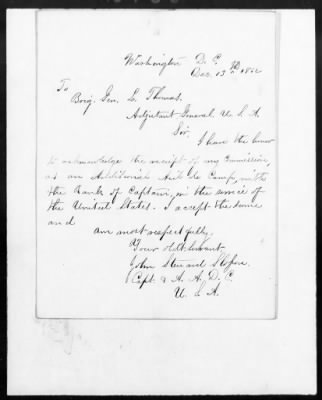 Washington D. C.
Dec. 13th 1862
To
Brig. Gen. L. Thomas.
Adjutant General U. S. A.
Sir.
I have the honor
to acknowledge the receipt of my Commission,
as an Additional Aid de Camp, with
the Rank of Captain, in the service of
the United States. I accept the same
and
am most respectfully,
Your obt Servant
John Steward
Capt. & A. A. D. C.
U. S. A.